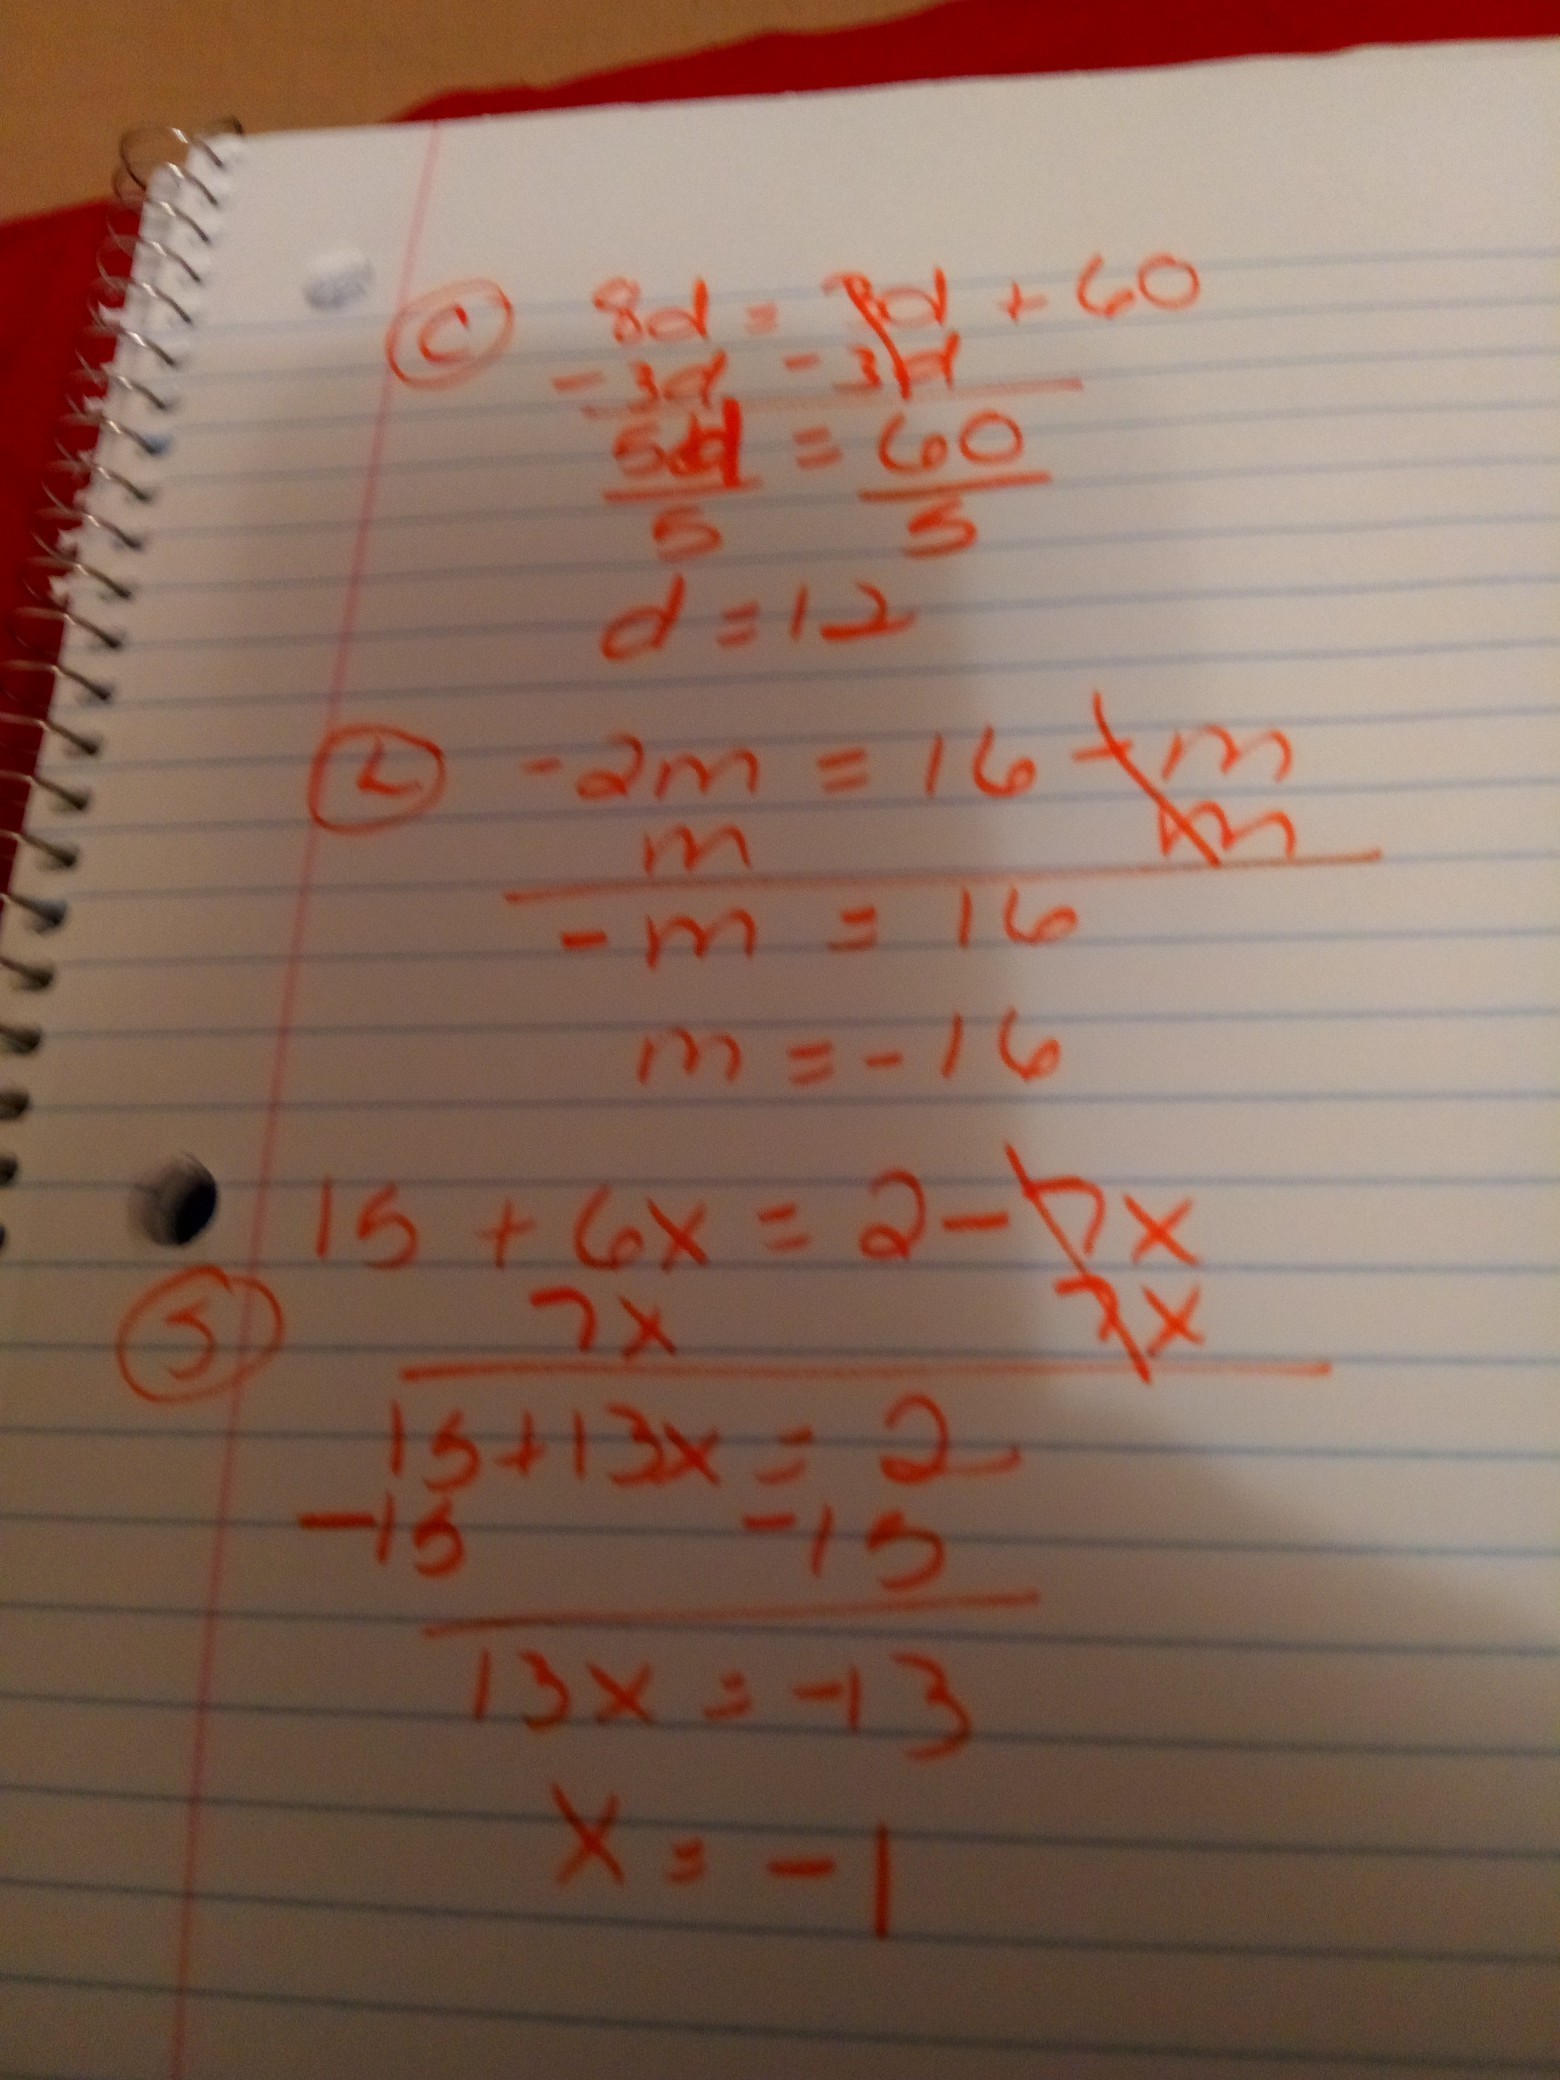 C 8d = 3d + 60
-3d -3d
5d = 60
5 5
d = 12
2 -2m = 16 - m
m m
-m = 16
m = -16
15 + 6x = 2 - 7x
7x 7x
15 + 13x = 2
-15 -15
13x = -13
x = -1